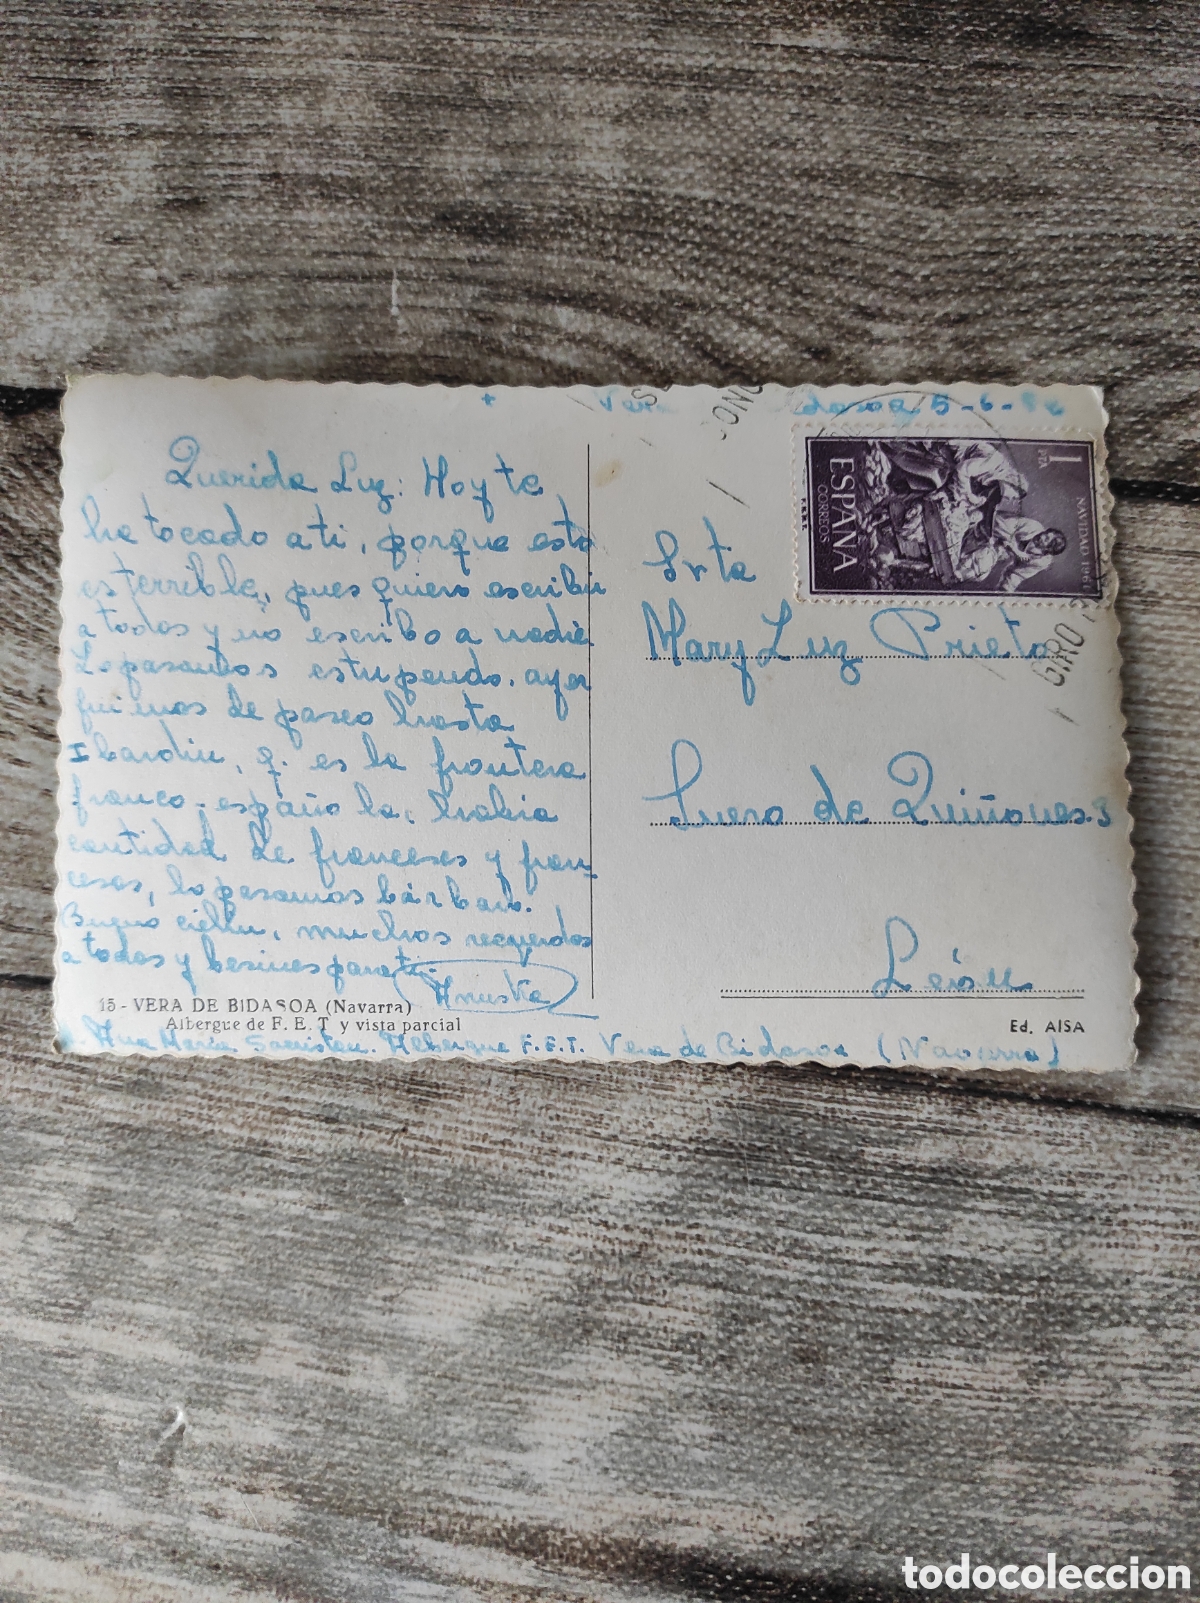 +
5-6-
Querida Luz: Hoy te
ha tocado a ti, porque esto
es terrible, pues quiero escribir
a todos y no escribo a nadie
Lo pasamos estupendo. ayer
fuimos de paseo hasta
Ibardin, q. es la frontera
franco-española, había
cantidad de franceses y fran-
cesas, lo pasamos bárbaro.
Bueno cielín, muchos recuerdos
a todos y besines para ti.
Anuska
15 - VERA DE BIDASOA (Navarra)
Albergue de F. E. T y vista parcial
Ana María Sacristan. Albergue F.E.T. Vera de Bidasoa (Navarra)
1 PTA
ESPAÑA
CORREOS
NAVIDAD 1961
F.N.M.T.
GIRO
Srta
Mary Luz Prieto
Suero de Quiñones. 3
León
Ed. AISA
todocoleccion